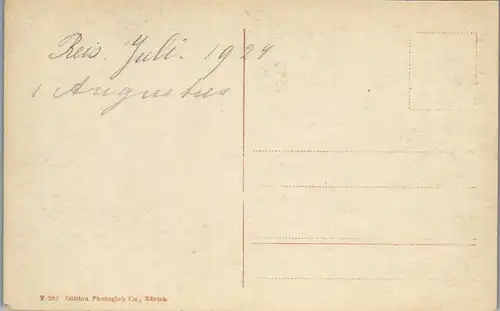 Reis. Juli. 1924
1 Augustus
V 285 Edition Photoglob Co., Zürich